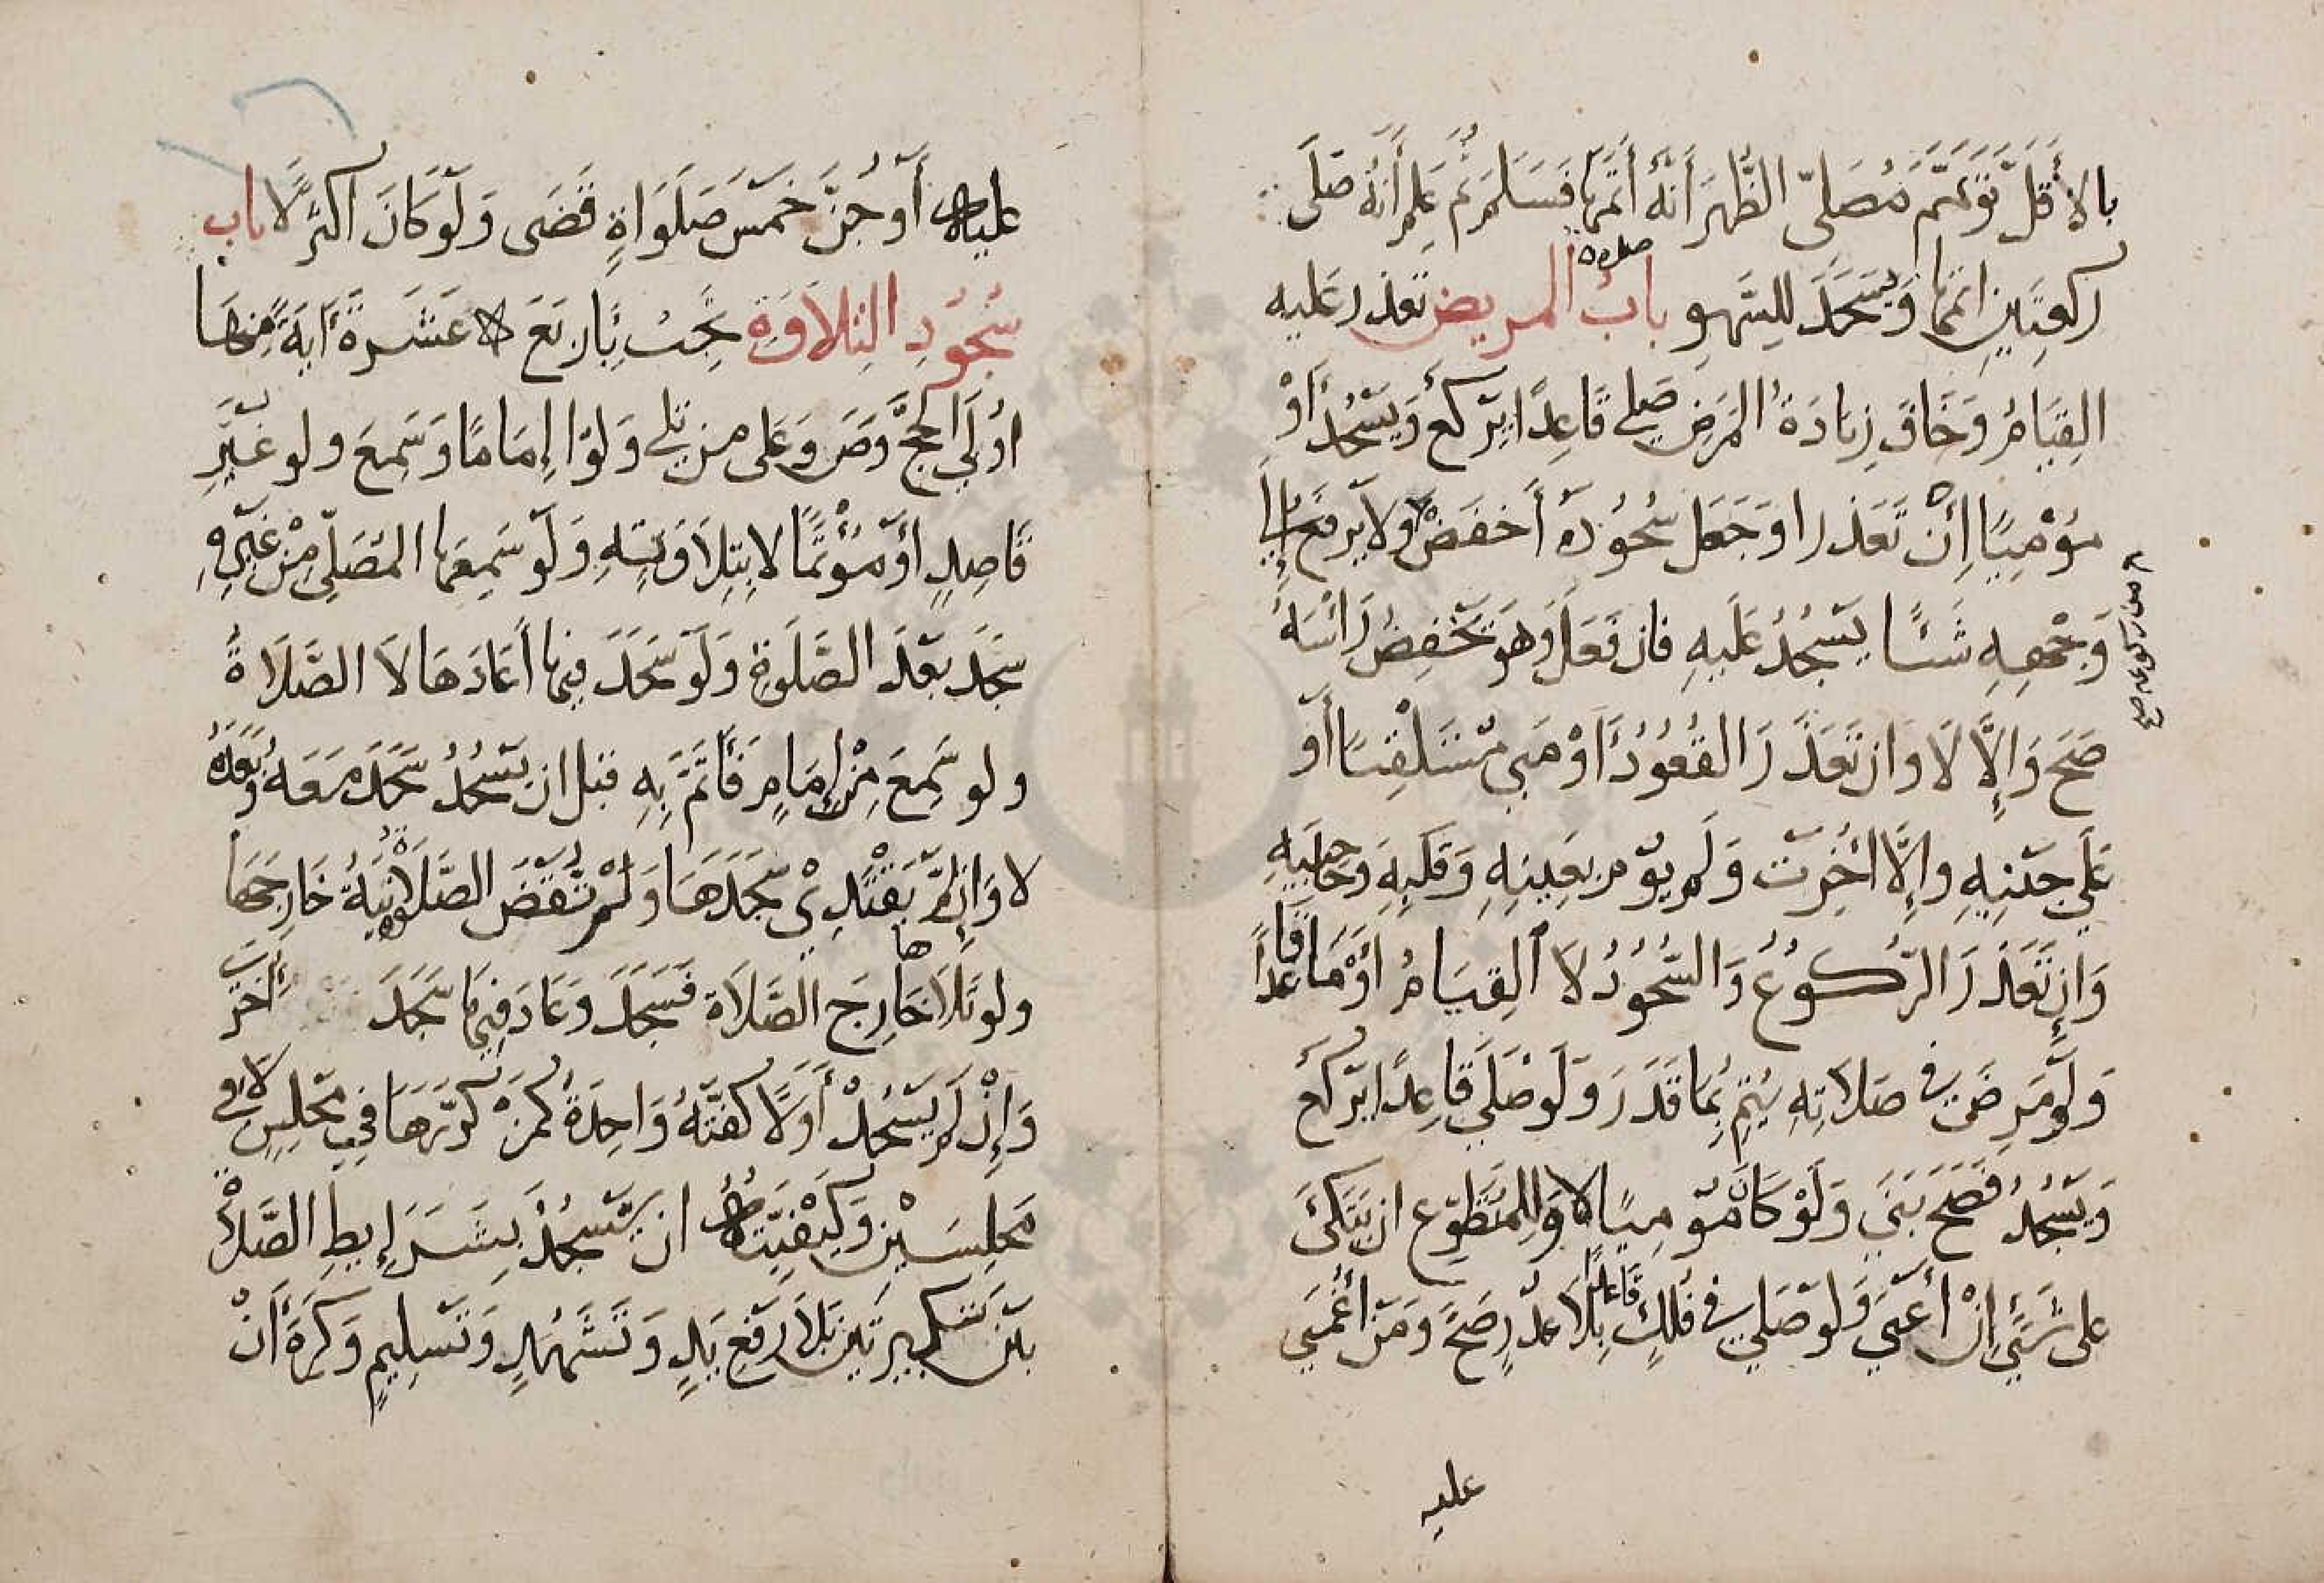 بالأَقَلَّ تَوَهَّمَ مُصَلِّي الظُّهْرَ أَنَّهُ أَتَمَّهَا فَسَلَّمَ ثُمَّ عَلِمَ أَنَّهُ صَلَّى
ركعتين اتمها وَيَسْجُدَ لِلسَّهوِ باب صلوة المريض تعذر عَليه
القِيَامُ وَخَافَ زِيَادَةُ المَرَضِ صلي قَاعِدًا يَركَعُ وَيَسْجُدُ أَوْ
مُؤْمِيًا إِنْ تَعَذرا وَجَعَل سُجُودَهُ أَخفَضْ وَلا يرفع إلى
م من ركوعه صح
وَجْهِهِ شَئًا يَسْجُدُ عَلَيهِ فان فَعَلَ وَهو يَخفِضُ رَأسَهُ
صَحَّ وَإِلَّا لَا وَان تَعَذَّرَ القُعُودُ أَوْمَىٰ مُسْتَلْقِيًا أَوْ
عَلَى جَنْبِهِ وإِلَّا أُخِرَت وَلَم يؤم بِعَينِهِ وَقَلبِهِ وَحَاجِبَيهِ
وَإِن تَعَذرَ الرُّكُوعُ وَالسُّجُودُ لَا القِيَامُ أَوْمَا قاعدًا
وَلَو مَرِضَ في صَلاَتِهِ يُتِمُّ بِمَا قَدَرَ وَلَو صَلَّى قَاعِدًا يَركَعُ
وَيَسْجُدُ فَصَحَّ بَنَى وَلَوْ كَانَ مُومِيًا لا وَلِلمُتَطَوِّع ان يَتَّكِئَ
على شَيْءٍ إِنْ أَعْيَى وَلَو صَلَّى في فُلكٍ قَاعدًا بِلَا عذرٍ صَحَّ وَمَن أُغْمِيَ
عليه
عليه أَو جُنَّ خَمسَ صَلَوَاةٍ قَضَى وَلَو كَانَ اكثَرَ لَا باب
سُجُودِ التِلَاوَةِ يَجِبُ بِأَربَعَ عَشَرةَ آيَةً مِنهَا
اوُلَى الحَجِّ وَصَ وَعَلى من تلى وَلَو إِمَامًا وَسَمِعَ ولو غَيرِ
قَاصِدٍ أَو مُؤْتَمًّا لا بِتِلَاوَتِهِ وَلَو سَمِعَهَا المُصَلِّي مِنْ غَيرِهِ
سَجَدَ بَعْدَ الصَّلَوةِ وَلَو سَجَدَ فيها أَعَادَهَا لَا الصَّلَاةَ
ولو سَمِعَ مِنْ إِمَامٍ فَأتَمَّ بِهِ قبل ان يَسْجُدُ سَجَدَ مَعَهُ وَبَعْدَهُ
لا وَإِن لَّم يَقْتَدِي سَجَدَهَا وَلَمْ تُقْضَ الصَّلَاتِيَّةُ خَارِجَهَا
ولو تَلَاها خَارِجَ الصَّلَاة فَسَجَدَ وَعَادَ فِيهَا سَجَدَ أُخرَى
وَإِنْ لَم يَسْجُدْ أَوَّلًا كَفَتْهُ وَاحِدَةٌ كَمَنْ كَرَّرَهَا فِي مَجلِسٍ لَا في
مَجلِسَيْنِ وَكَيْفِيَّتُهُ ان يَسْجُدَ بِشَرَايِطِ الصَّلَاةِ
بَيْنَ تَكبِيرتَين بِلَا رَفْعِ يَدٍ وَتَشَهُّدٍ وَتَسْلِيمٍ وَكَرِهَ أَنْ